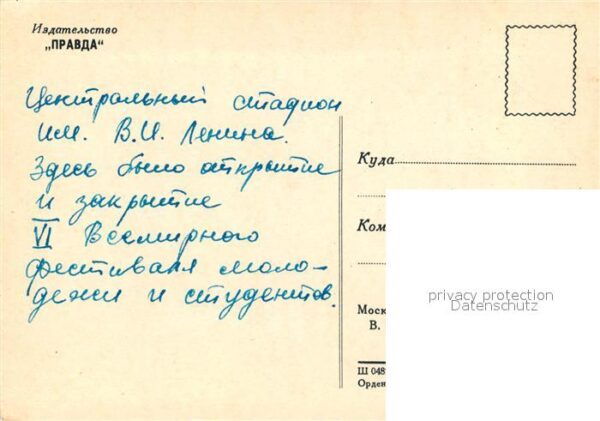 Издательство
„ПРАВДА“
Центральный стадион
им. В.И. Ленина.
Здесь было открытие
и закрытие
VI Всемирного
фестиваля моло-
дежи и студентов.
Куда
Ком
Моск
В.
Ш 048
Орден
privacy protection
Datenschutz